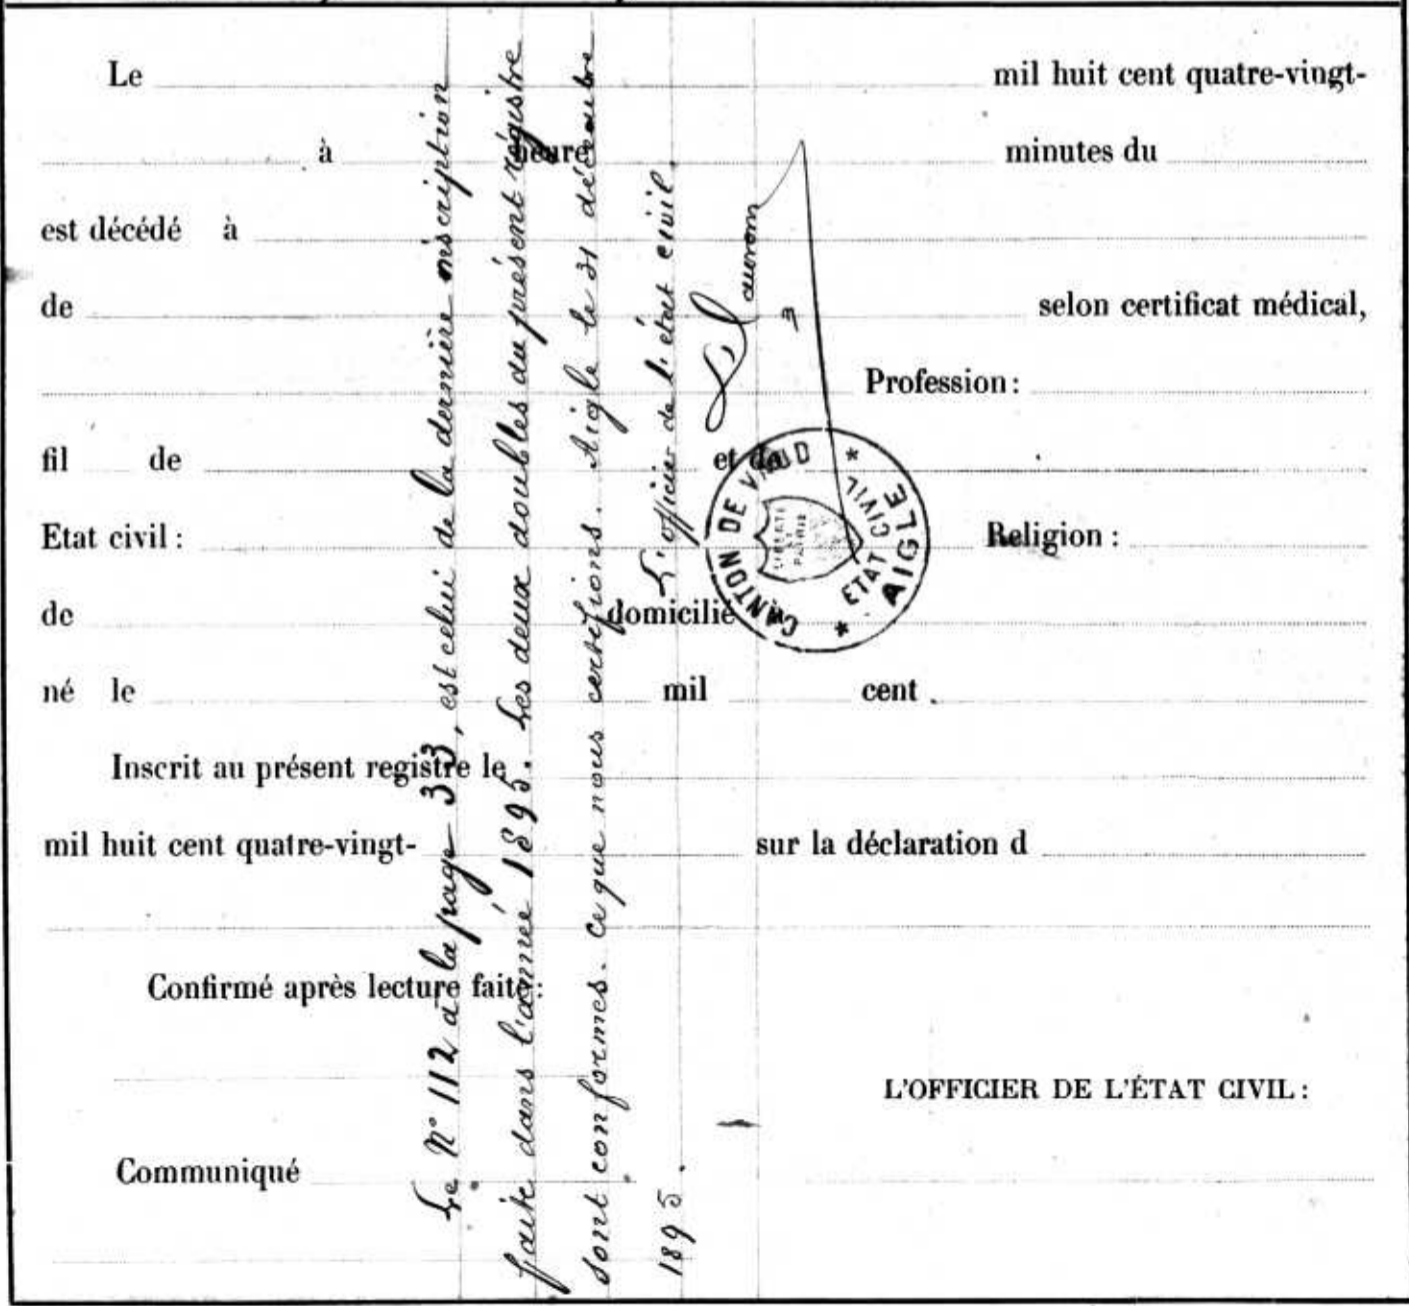 Le mil huit cent quatre-vingt-
à heure minutes du
est décédé à
de selon certificat médical,
Profession:
fil de et de
Etat civil: Religion:
de domicilié
né le mil cent
Inscrit au présent registre le
mil huit cent quatre-vingt- sur la déclaration d
Confirmé après lecture faite:
L'OFFICIER DE L'ÉTAT CIVIL:
Communiqué
Le N° 112 à la page 373, est celui de la dernière inscription
faite dans l'année 1895. Les deux doubles du présent régistre
sont conformes. ce que nous certifions. Aigle le 31 décembre
1895. L'officier de l'état civil.
CANTON DE VAUD
LIBERTÉ
ET
PATRIE
* ETAT CIVIL *
AIGLE